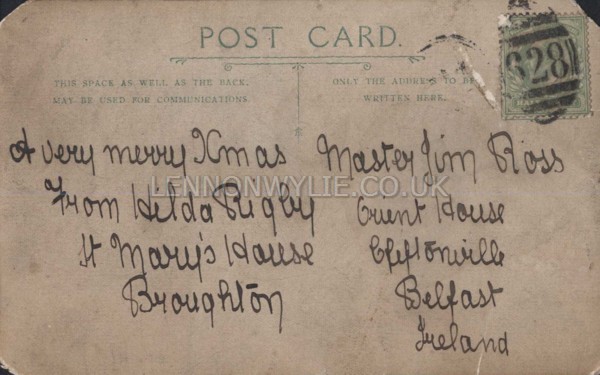 POST CARD.
THIS SPACE AS WELL AS THE BACK,
MAY BE USED FOR COMMUNICATIONS.
ONLY THE ADDRESS TO BE
WRITTEN HERE.
628
A very merry Xmas
From Hilda Rigby
St Mary's House
Broughton
Master Jim Ross
Orient House
Cliftonville
Belfast
Ireland
LENNONWYLIE.CO.UK